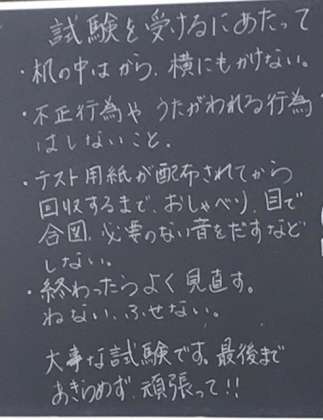 試験を受けるにあたって
・机の中はから、横にもかけない。
・不正行為や うたがわれる行為
はしないこと。
・テスト用紙が配布されてから
回収するまで、おしゃべり、目で
合図、必要のない音をだすなど
しない。
・終わったらよく見直す。
ねない、ふせない。
大事な試験です。最後まで
あきらめず、頑張って!!